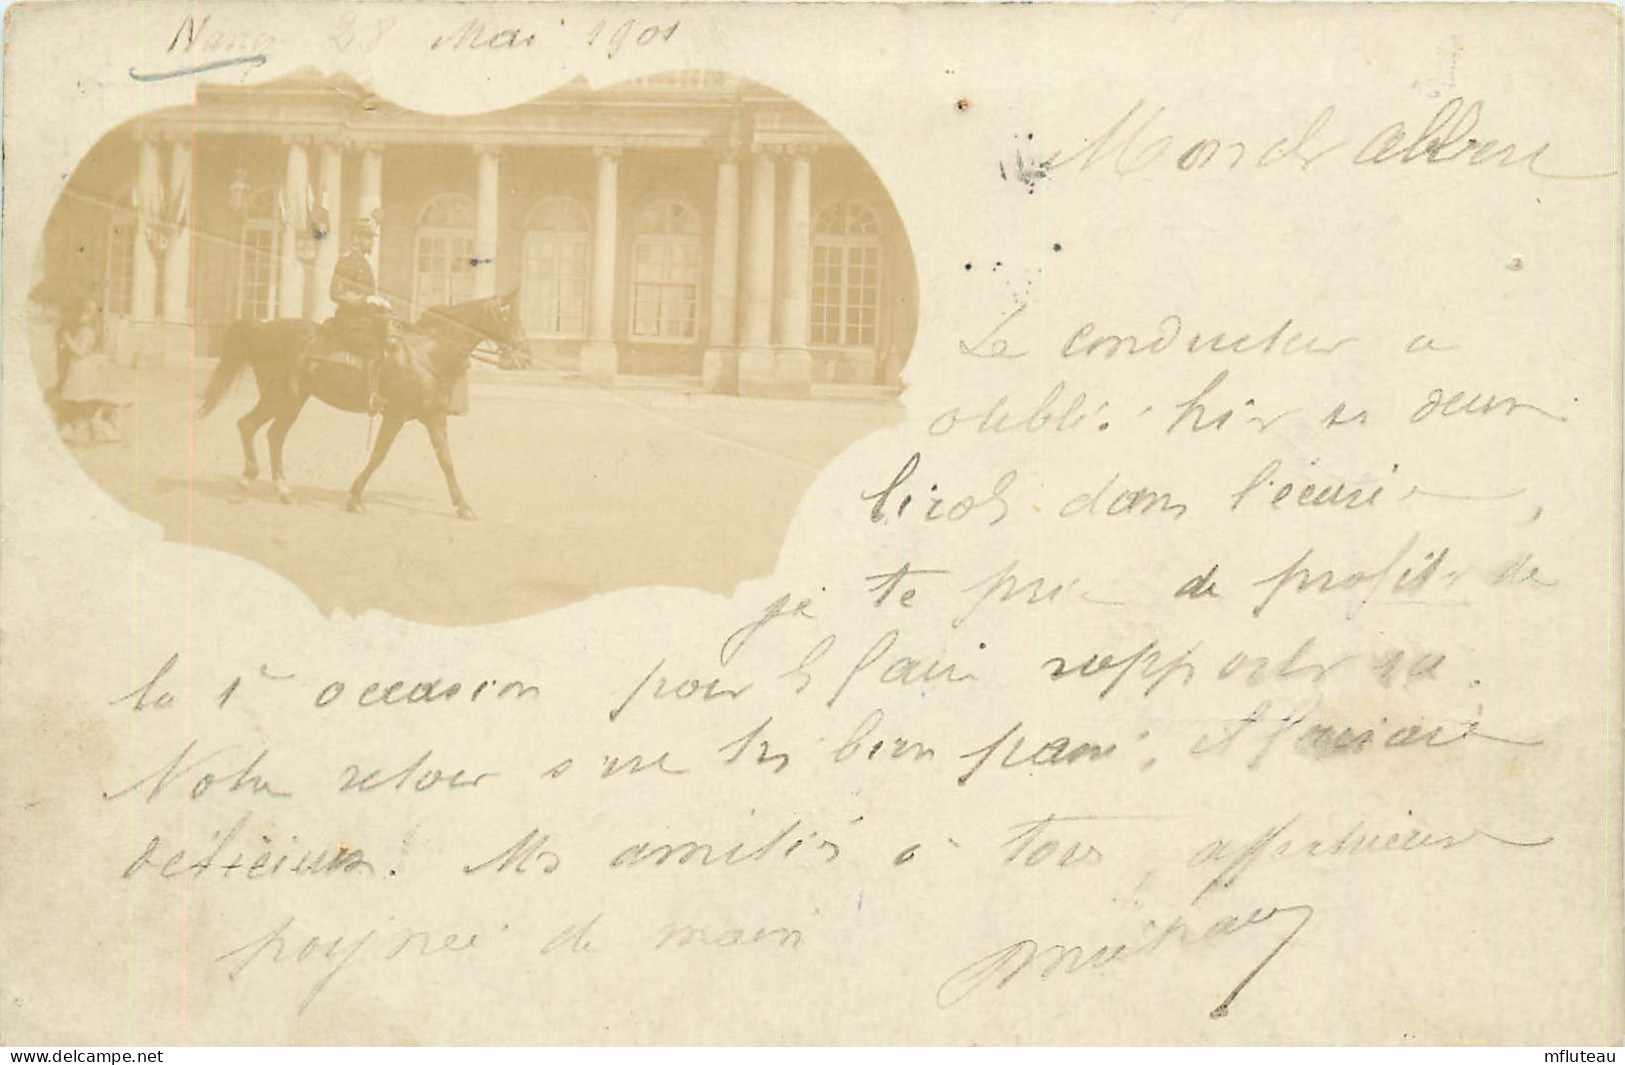 Nancy 28 Mai 1901
Mon cher Albert
Le conducteur a
oublié hier ses deux
licols dans l'écurie,
je te prie de profiter de
la 1e occasion pour les faire rapporter
Notre retour s'est très bien passé, et
délicieux! Mes amitiés à tous, affectueuse
poignée de main
www.delcampe.net
mfluteau